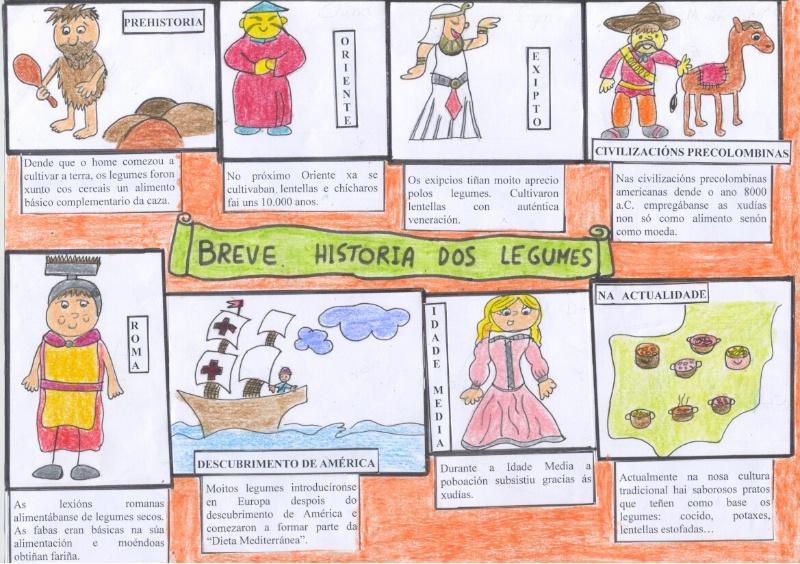 PREHISTORIA
Dende que o home comezou a
cultivar a terra, os legumes foron
xunto cos cereais un alimento
básico complementario da caza.
ORIENTE
No próximo Oriente xa se
cultivaban lentellas e chícharos
fai uns 10.000 anos.
EXIPTO
Os exipcios tiñan moito aprecio
polos legumes. Cultivaron
lentellas con auténtica
veneración.
CIVILIZACIÓNS PRECOLOMBINAS
Nas civilizacións precolombinas
americanas dende o ano 8000
a.C. empregábanse as xudías
non só como alimento senón
como moeda.
BREVE HISTORIA DOS LEGUMES
ROMA
As lexións romanas
alimentábanse de legumes secos.
As fabas eran básicas na súa
alimentación e moéndoas
obtiñan fariña.
DESCUBRIMENTO DE AMÉRICA
Moitos legumes introducíronse
en Europa despois do
descubrimento de América e
comezaron a formar parte da
“Dieta Mediterránea”.
IDADE MEDIA
Durante a Idade Media a
poboación subsistiu gracias ás
xudías.
NA ACTUALIDADE
Actualmente na nosa cultura
tradicional hai saborosos pratos
que teñen como base os
legumes: cocido, potaxes,
lentellas estofadas…